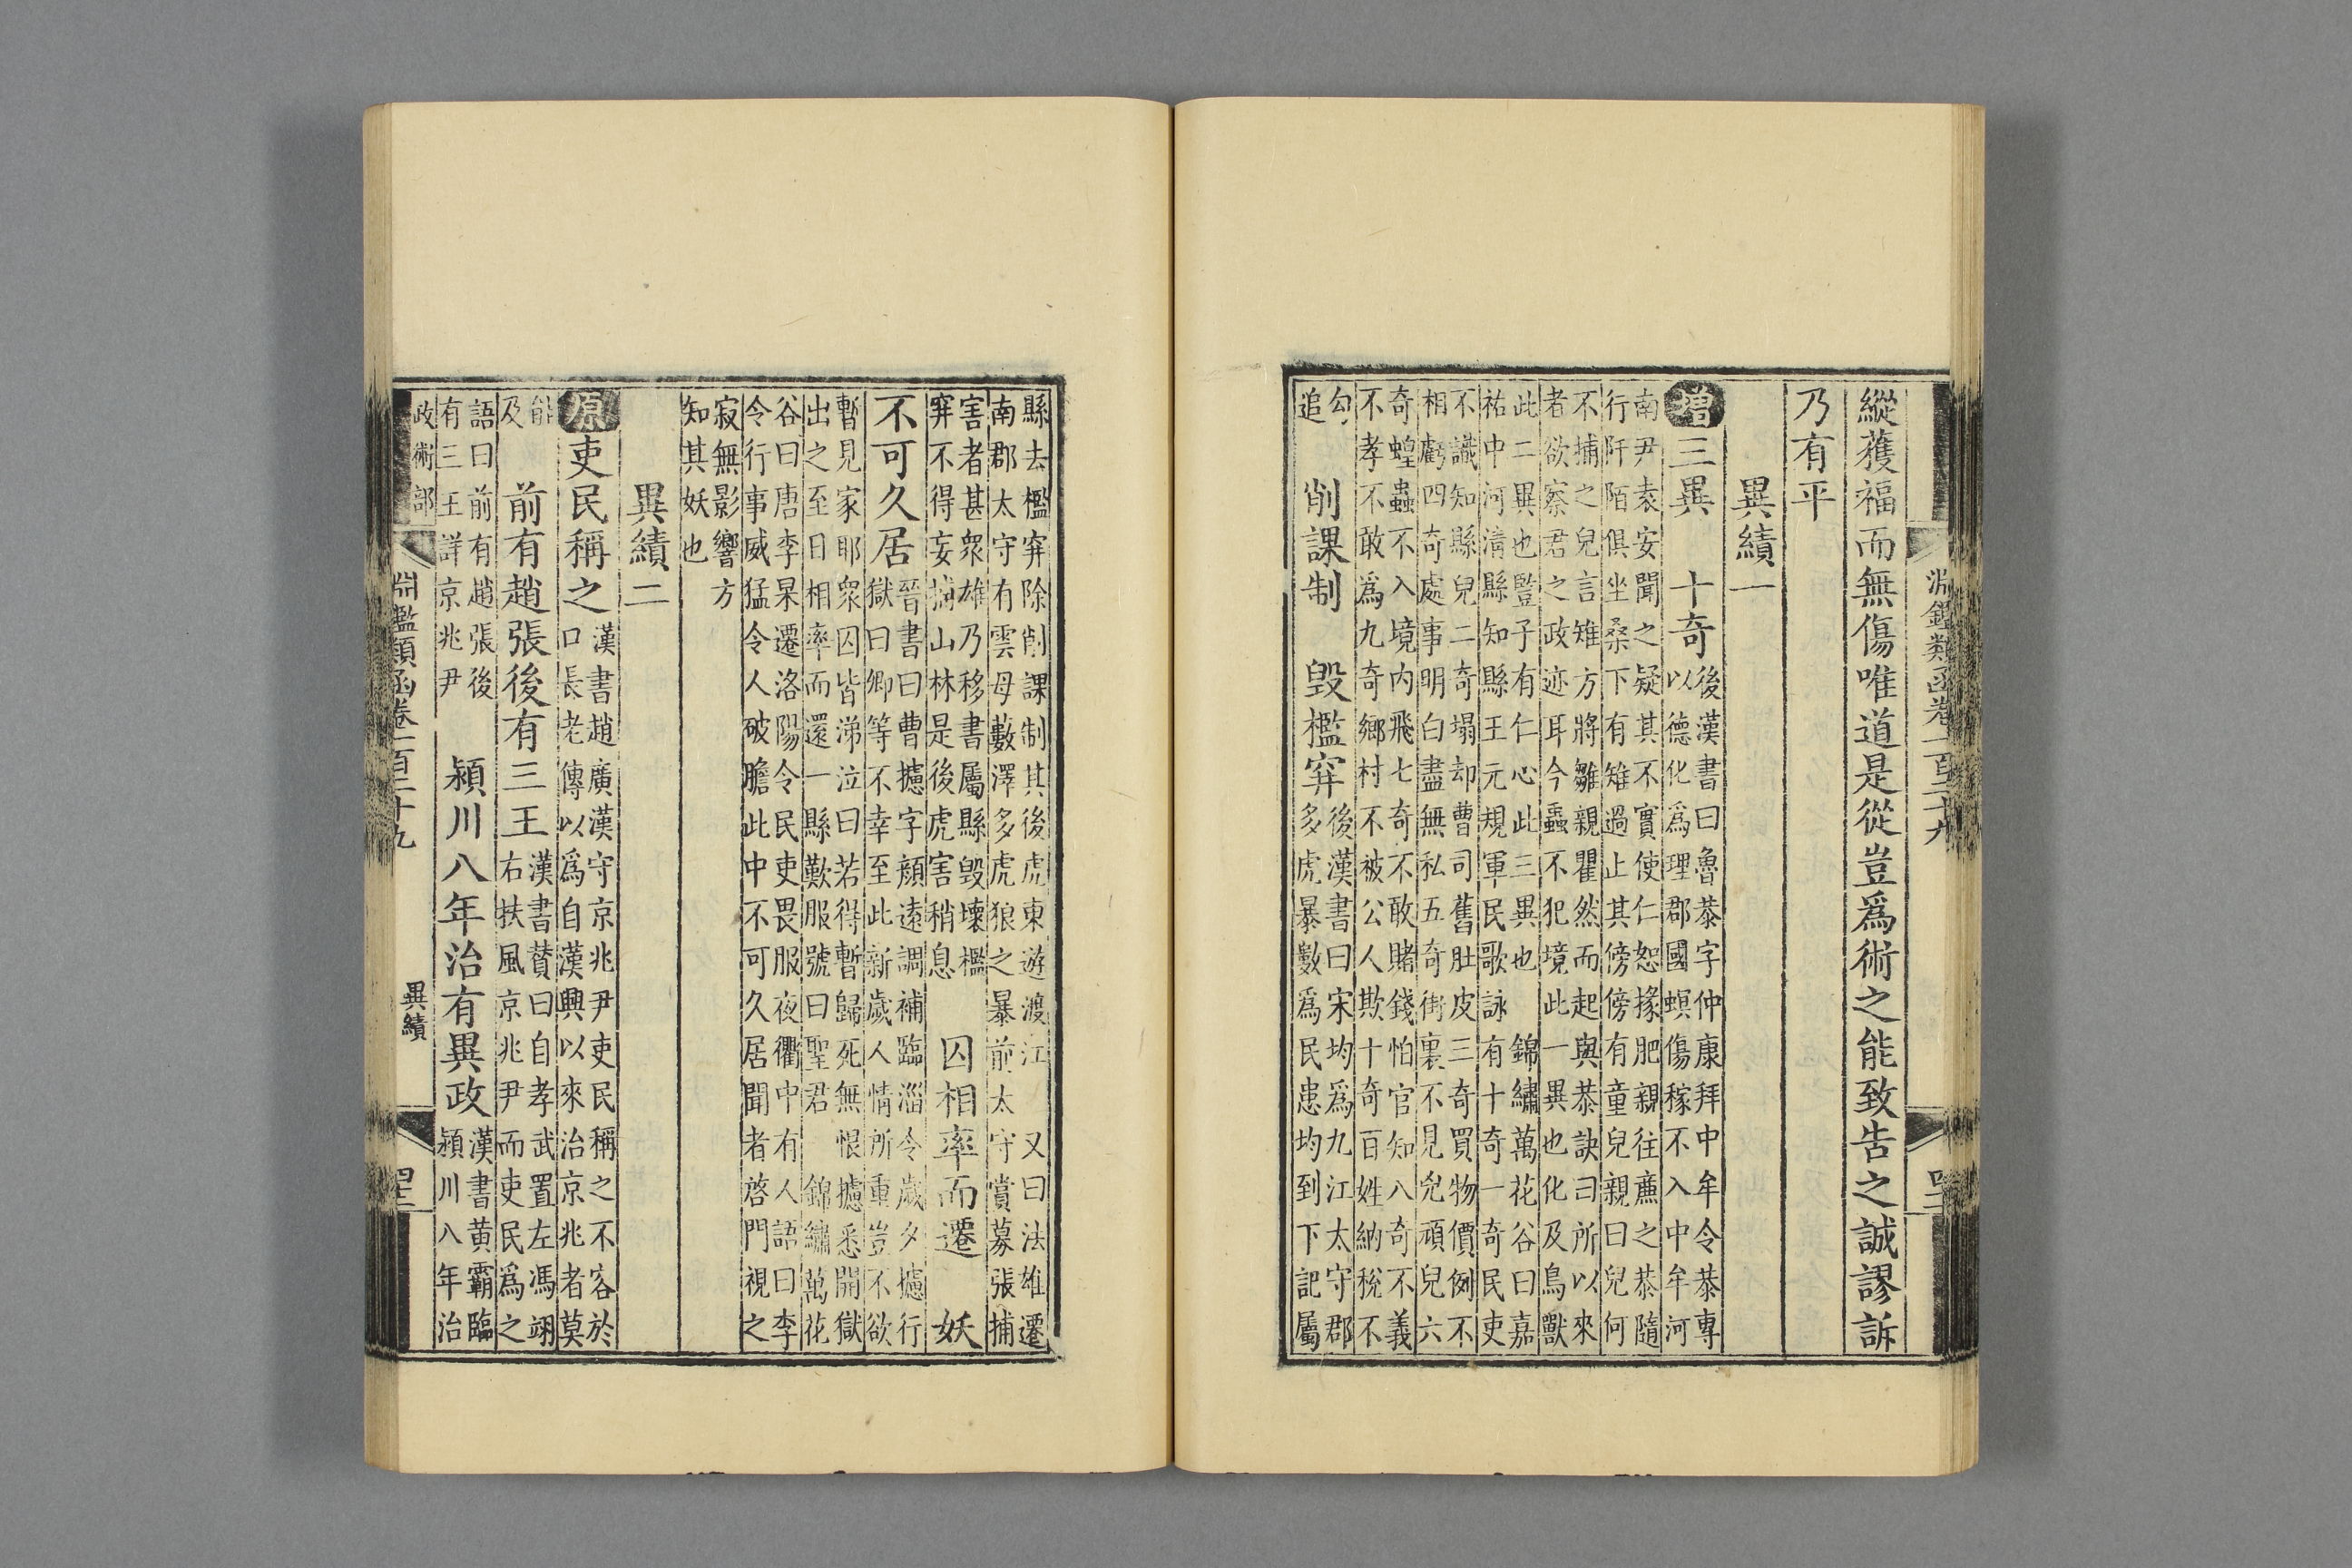 淵鑑類函卷一百二十九
縱獲福而無傷唯道是從豈爲術之能致吿之誠謬訴
乃有平
異績一
增三異　十奇
後漢書曰魯恭字仲康拜中牟令恭專
以德化爲理郡國螟傷稼不入中牟河
南尹袁安聞之疑其不實使仁恕掾肥親往廉之恭隨
行阡陌俱坐桑下有雉過止其傍傍有童兒親曰兒何
不捕之兒言雉方將雛親瞿然而起與恭訣曰所以來
者欲察君之政迹耳今蟲不犯境此一異也化及鳥獸
此二異也豎子有仁心此三異也　錦繡萬花谷曰嘉
祐中河淸縣知縣王元規軍民歌詠有十奇一奇民吏
不識知縣兒二奇塌却曹司舊肚皮三奇買物價例不
相虧四奇處事明白盡無私五奇街裏不見兇頑兒六
奇蝗蟲不入境內飛七奇不敢賭錢怕官知八奇不義
不孝不敢爲九奇鄉村不被公人欺十奇百姓納稅不
勾
追
削課制　毀檻穽
後漢書曰宋均爲九江太守郡
多虎暴數爲民患均到下記屬
縣去檻穽除削課制其後虎東遊渡江　又曰法雄遷
南郡太守有雲母藪澤多虎狼之暴前太守賞募張捕
害者甚衆雄乃移書屬縣毀壞檻
穽不得妄捕山林是後虎害稍息
囚相率而還　妖
不可久居
晉書曰曹攄字顏遠調補臨淄令歲夕攄行
獄曰卿等不幸至此新歲人情所重豈不欲
暫見家耶衆囚皆涕泣曰若得暫歸死無恨攄悉開獄
出之至日相率而還一縣歎服號曰聖君　錦繡萬花
谷曰唐李杲遷洛陽令民吏畏服夜衢中有人語曰李
令行事威猛令人破膽此中不可久居聞者啓門視之
寂無影響方
知其妖也
異績二
原吏民稱之
漢書趙廣漢守京兆尹吏民稱之不容於
口長老傳以爲自漢興以來治京兆者莫
能
及
前有趙張後有三王
漢書贊曰自孝武置左馮翊
右扶風京兆尹而吏民爲之
語曰前有趙張後
有三王詳京兆尹
潁川八年治有異政
漢書黃霸臨
潁川八年治
政術部
淵鑑類函卷一百二十九
異績